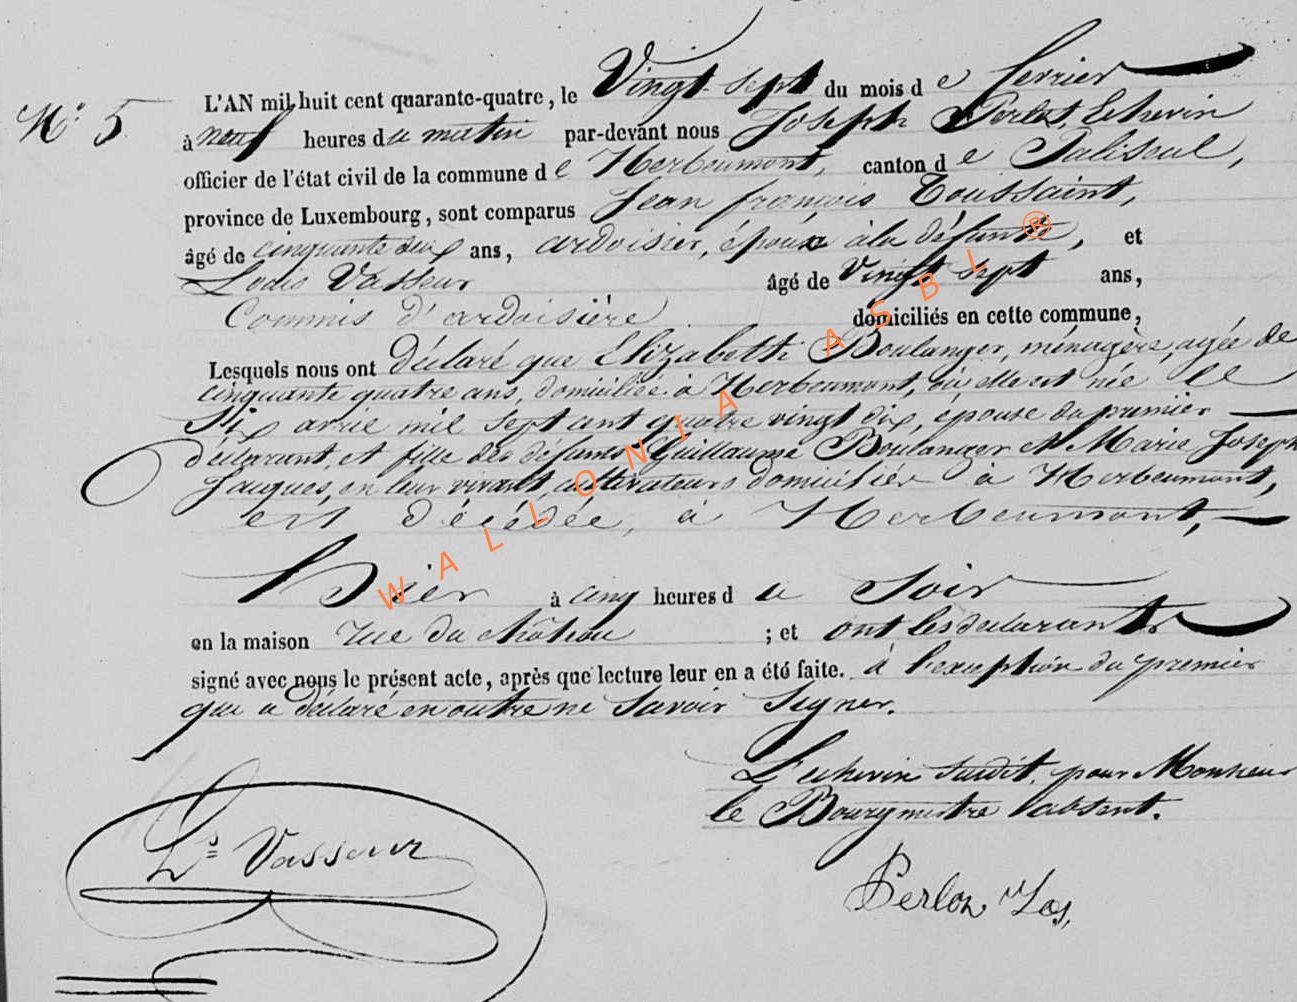 L'AN mil huit cent quarante-quatre, le Vingt-sept du mois de ferrier
N° 5
à neuf heures du matin par-devant nous Joseph Perlot, Echevin
officier de l'état civil de la commune de Herbeumont, canton de Paliseul,
province de Luxembourg, sont comparus Jean françois Toussaint,
âgé de cinquante deux ans, ardoisier, époux à la défunte, et
Louis Vasseur âgé de Vingt sept ans,
Commis d'ardoisière domiciliés en cette commune,
Lesquels nous ont déclaré que Elizabeth Boulanger, ménagère, agée de
cinquante quatre ans, domiciliée à Herbeumont, où elle est née le
Six avril mil sept cent quatre vingt dix, épouse du premier
déclarant, et fille des défunts Guillaume Boulanger et Marie Joseph
Jacques, en leur vivant, cultivateurs domiciliés à Herbeumont,
est décédée, à Herbeumont,
hier à cinq heures du Soir
en la maison rue du château ; et ont les déclarants
signé avec nous le présent acte, après que lecture leur en a été faite. à l'exception du premier
qui a déclaré en outre ne Savoir Signer.
L'echevin susdit, pour Monsieur
le Bourgmestre absent.
Ls Vasseur
Perlot Jos,
WALLONIA ASBL ®